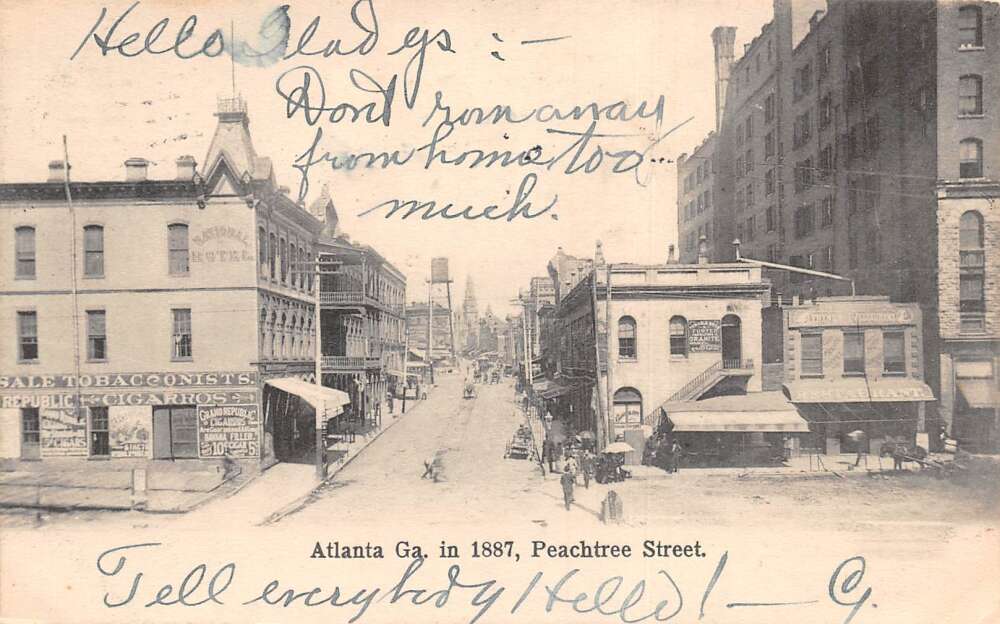 Hello Gladys :-
Dont rom away
from home too
much.
NATIONAL
HOTEL
SALE TOBACCONISTS.
REPUBLIC
CIGARROS
GRAND REPUBLIC
CIGARROS
HAVANA FILLED
10¢ CIGAR 5¢
CIGARS
GRANITE
Atlanta Ga. in 1887, Peachtree Street.
Tell everybody Hello! - G.